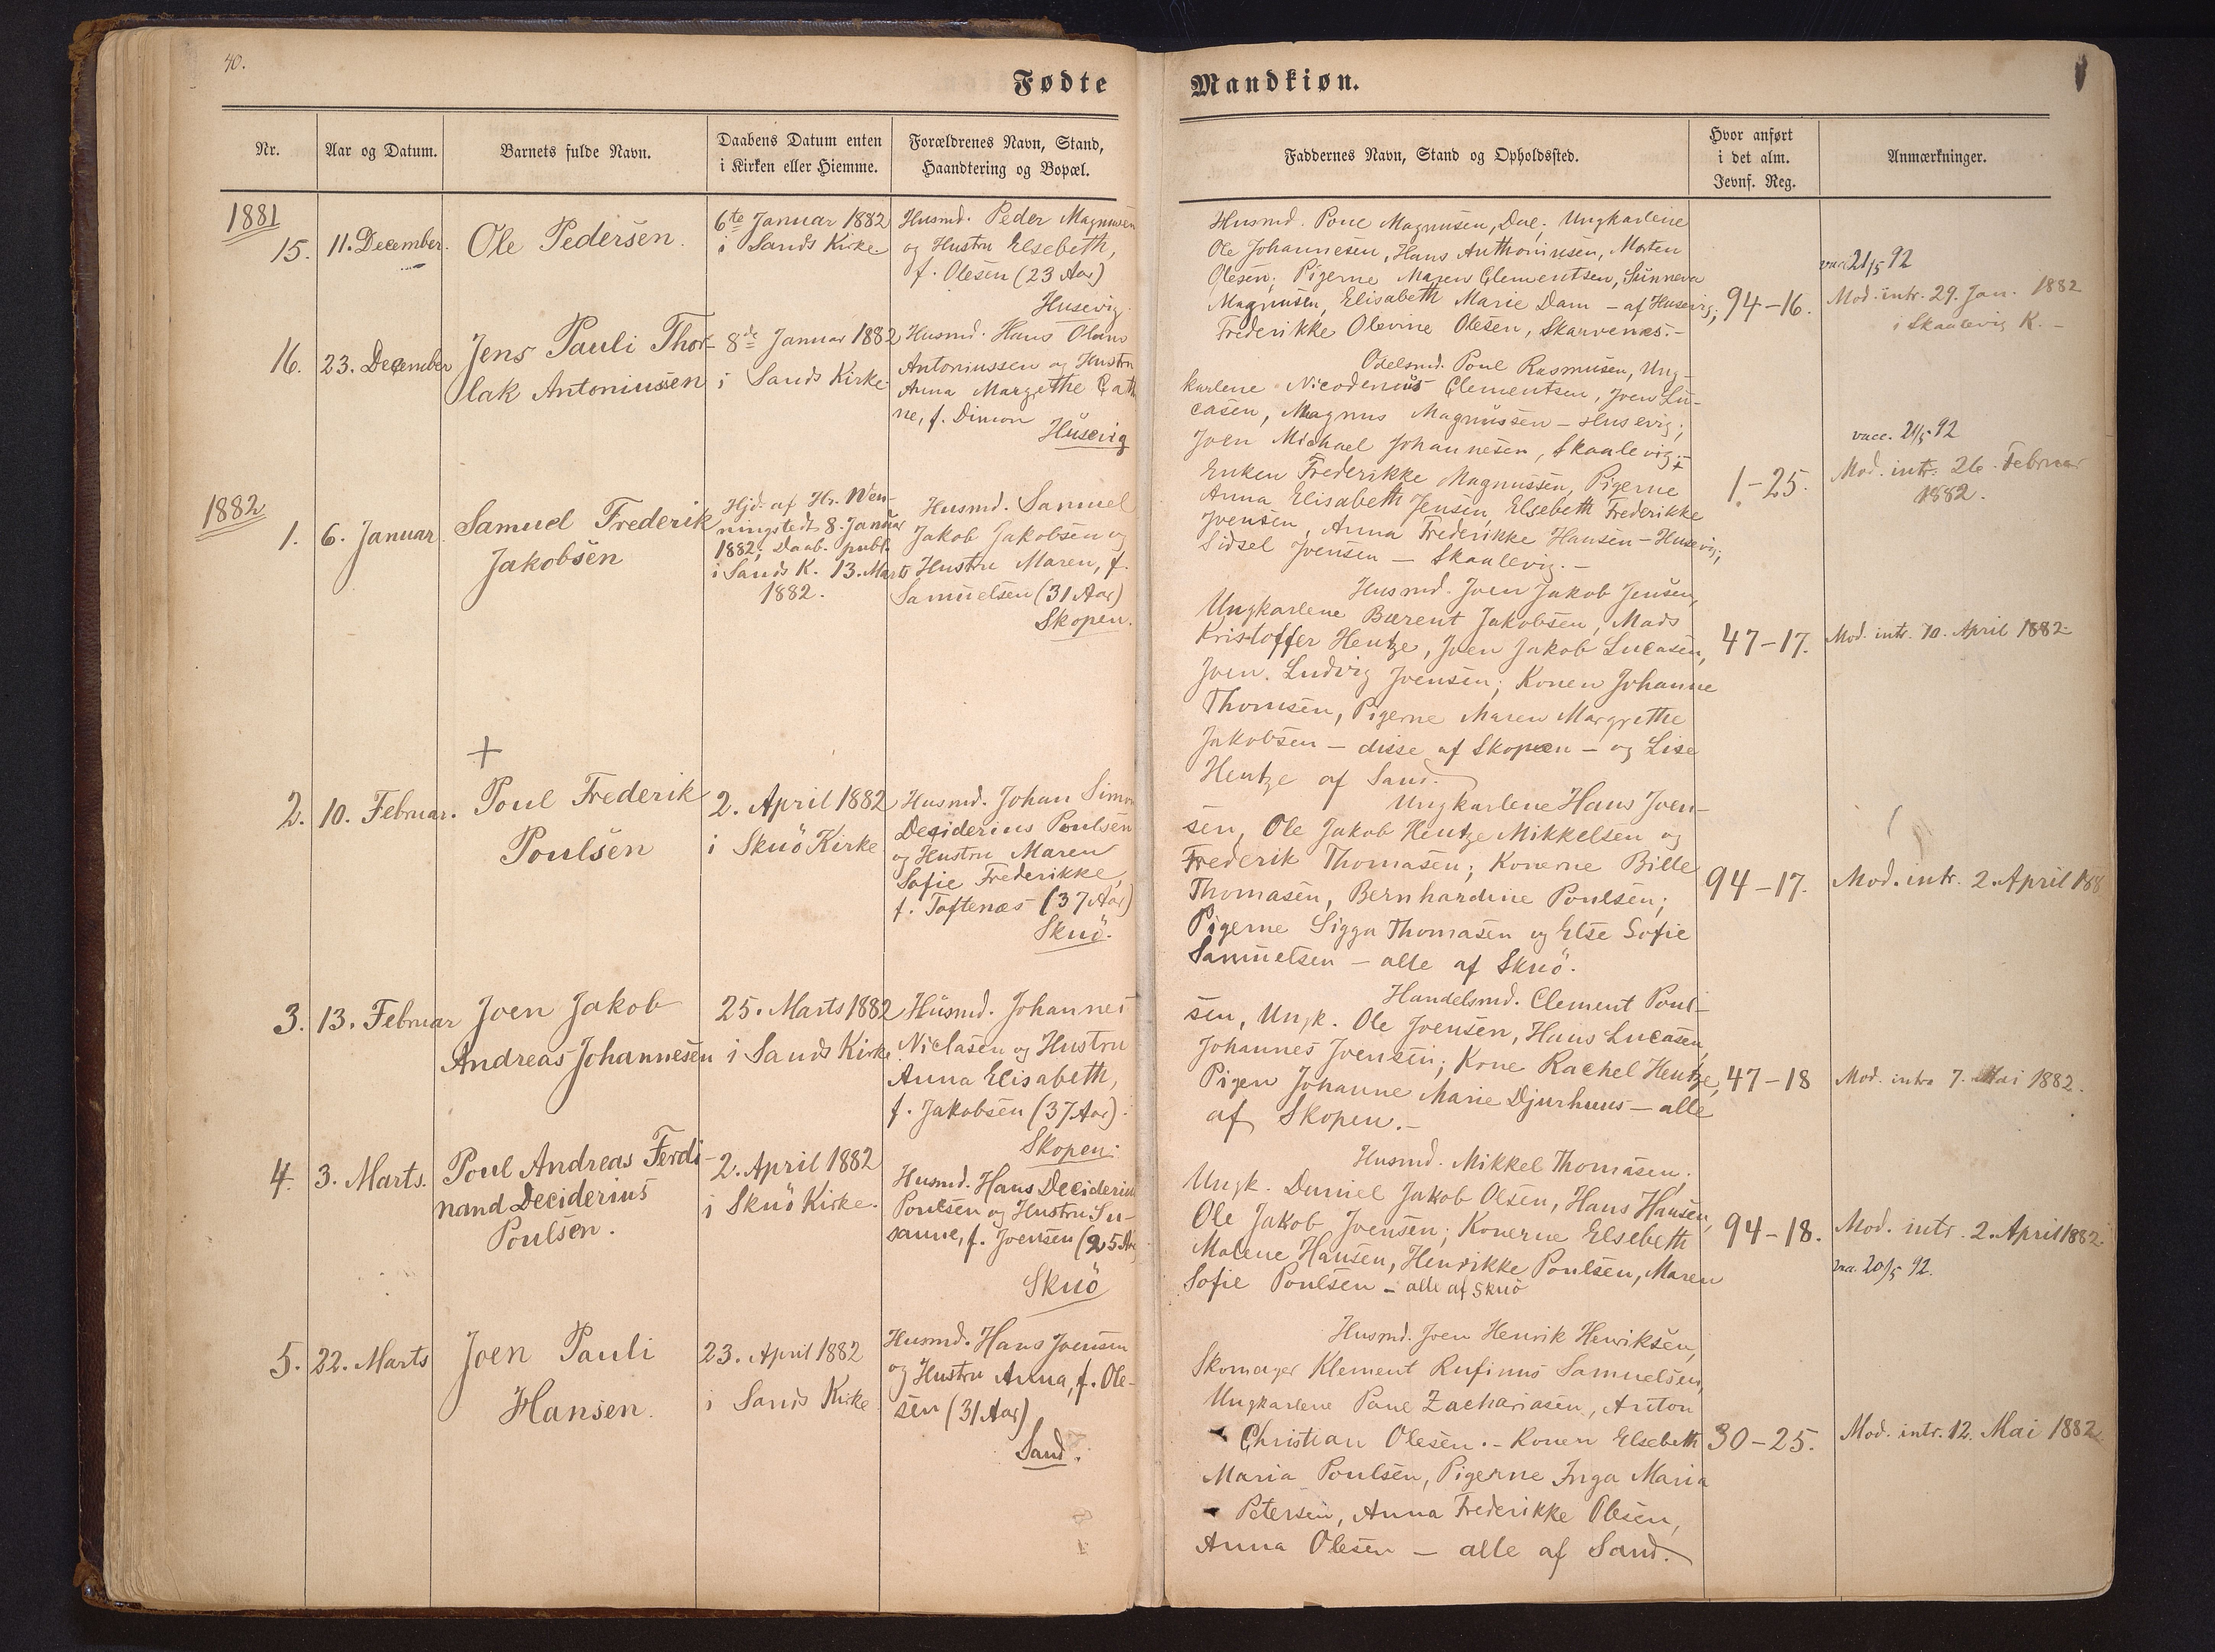 40.
Fødte
Nr.
Aar og Datum.
Barnets fulde Navn.
Daabens Datum enten
i Kirken eller Hiemme.
Forældrenes Navn, Stand,
Haandtering og Bopæl.
1881
15.
11. December.
Ole Pedersen.
6te Januar 1882
i Sands Kirke
Husmd. Peder Magnusen
og Hustru Elsebeth,
f. Olesen (23 Aar)
Husevig.
16.
23. December
Jens Pauli Thor-
lak Antoniussen
8de Januar 1882
i Sands Kirke
Husmd. Hans Olaus
Antoniussen og Hustru
Anna Margrethe Cath
ne, f. Dimon
Husevig
1882
1.
6. Januar
Samuel Frederik
Jakobsen
Hjd. af Hr. Wen-
ningstedt 8. Januar
1882; Daab. publ.
i Sands K. 13. Marts
1882.
Husmd. Samuel
Jakob Jakobsen og
Hustru Maren, f.
Samuelsen (31 Aar)
Skopen.
+
2.
10. Februar.
Poul Frederik
Poulsen
2. April 1882
i Skuö Kirke
Husmd. Johan Simon
Desiderius Poulsen
og Hustru Maren
Sofie Frederikke,
f. Toftenæs (37 Aar)
Skuö.
3.
13. Februar
Joen Jakob
Andreas Johannesen
25. Marts 1882
i Sands Kirke
Husmd. Johannes
Niclasen og Hustru
Anna Elisabeth,
f. Jakobsen (37 Aar).
Skopen.
4.
3. Marts.
Poul Andreas Ferdi-
nand Deciderius
Poulsen.
2. April 1882
i Skuö Kirke.
Husmd. Hans Deciderius
Poulsen og Hustru Su-
sanne, f. Joensen (25 Aar
Skuö
5.
22. Marts
Joen Pauli
Hansen.
23. April 1882
i Sands Kirke
Husmd. Hans Joensen
og Hustru Anna, f. Ole-
sen (31 Aar)
Sand.
Mandkiøn.
Faddernes Navn, Stand og Opholdssted.
Hvor anført
i det alm.
Jevnf. Reg.
Anmærkninger.
Husmd. Poul Magnusen, Dal; Ungkarlene
Ole Johannesen, Hans Anthoniusen, Morten
Olesen; Pigerne Maren Clementsen, Sunneva
Magnusen, Elisabeth Marie Dam – af Husevig;
Frederikke Olevine Olesen, Skarvenes.–
94–16.
21/5 92
Mod. intr. 29. Jan. 1882
i Skaalevig K. –
Odelsmd. Poul Rasmusen, Ung-
karlene Nicodemus Clementsen, Joen Lu-
casen, Magnus Magnussen – Husevig;
Joen Michael Johannesen, Skaalevig;
Enken Frederikke Magnussen, Pigerne
Anna Elisabeth Jensen, Elsebeth Frederikke
Joensen, Anna Frederikke Hansen – Husevig;
Sidsel Joensen – Skaalevig.–
1.–25.
vacc. 21/5 92
Mod. intr. 26. Februar
1882.
Husmd. Joen Jakob Jensen,
Ungkarlene Barent Jakobsen, Mads
Kristoffer Hentze, Joen Jakob Lucasen,
Joen Ludvig Joensen; Konen Johanne
Thomsen, Pigerne Maren Margrethe
Jakobsen – disse af Skopen – og Lise
Hentze af Sand.
47–17.
Mod. intr. 10. April 1882
Ungkarlene Hans Joen-
sen, Ole Jakob Hentze Mikkelsen og
Frederik Thomasen; Konerne Bille
Thomasen, Bernhardine Poulsen;
Pigerne Sigga Thomasen og Else Sofie
Samuelsen – alle af Skuö.
94–17.
Mod. intr. 2. April 188
Handelsmd. Clement Poul-
sen, Ungk. Ole Joensen, Hans Lucasen,
Johannes Joensen; Kone Rachel Hentze,
Pigen Johanne Marie Djurhuus – alle
af Skopen.–
47–18
Mod. intro 7. Mai 1882.
Husmd. Mikkel Thomasen;
Ungk. Daniel Jakob Olsen, Hans Hansen,
Ole Jakob Joensen; Konerne Elsebeth
Malene Hansen, Henrikke Poulsen, Maren
Sofie Poulsen – alle af Skuö
94–18.
Mod. intr. 2. April 1882.
vac. 20/5 92.
Husmd. Joen Henrik Henriksen,
Skomager Klement Rufinus Samuelsen,
Ungkarlene Poul Zachariasen, Anton
Christian Olesen. – Konen Elsebeth
Maria Poulsen, Pigerne Inga Maria
Petersen, Anna Frederikke Olesen,
Anna Olesen – alle af Sand.
30–25.
Mod. intr. 12. Mai 1882